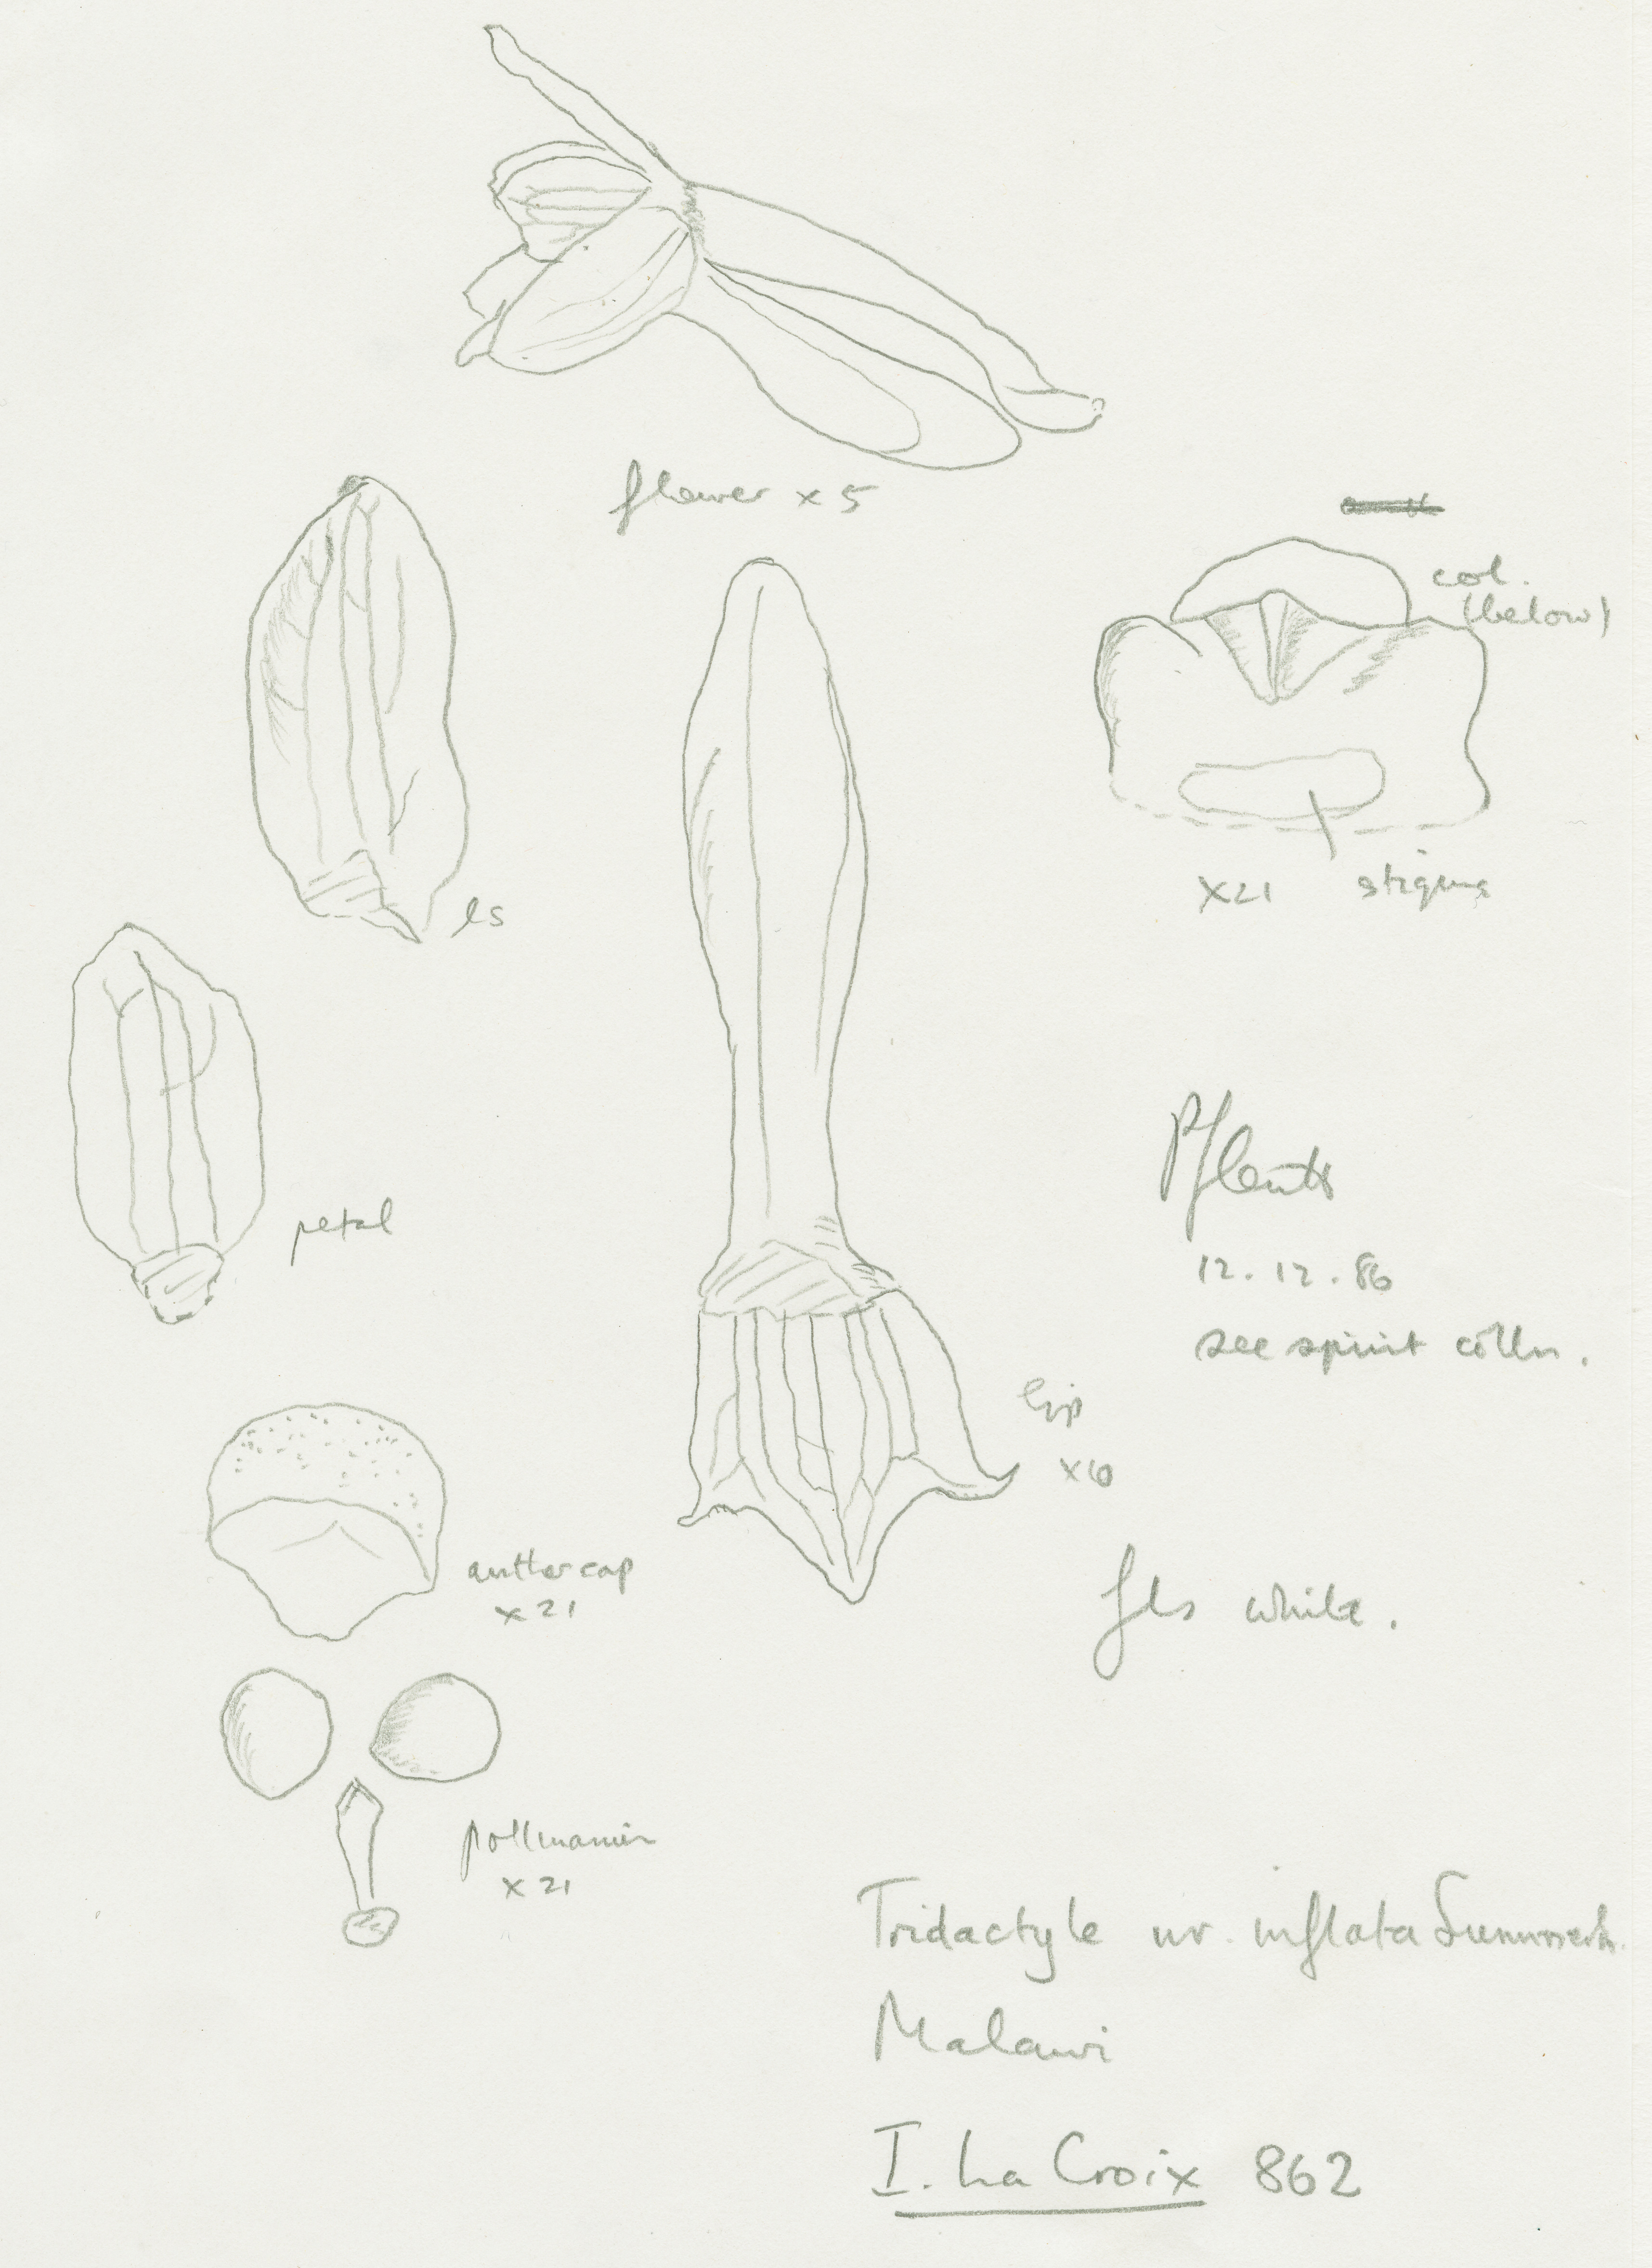 flower x 5
col.
(below)
x21 stigma
ls
petal
12.12.86
see spirit colln.
lip
x6
anther cap
x 21
fls white.
pollinarium
x 21
Tridactyle nr. inflata Summerh.
Malawi
I. La Croix 862